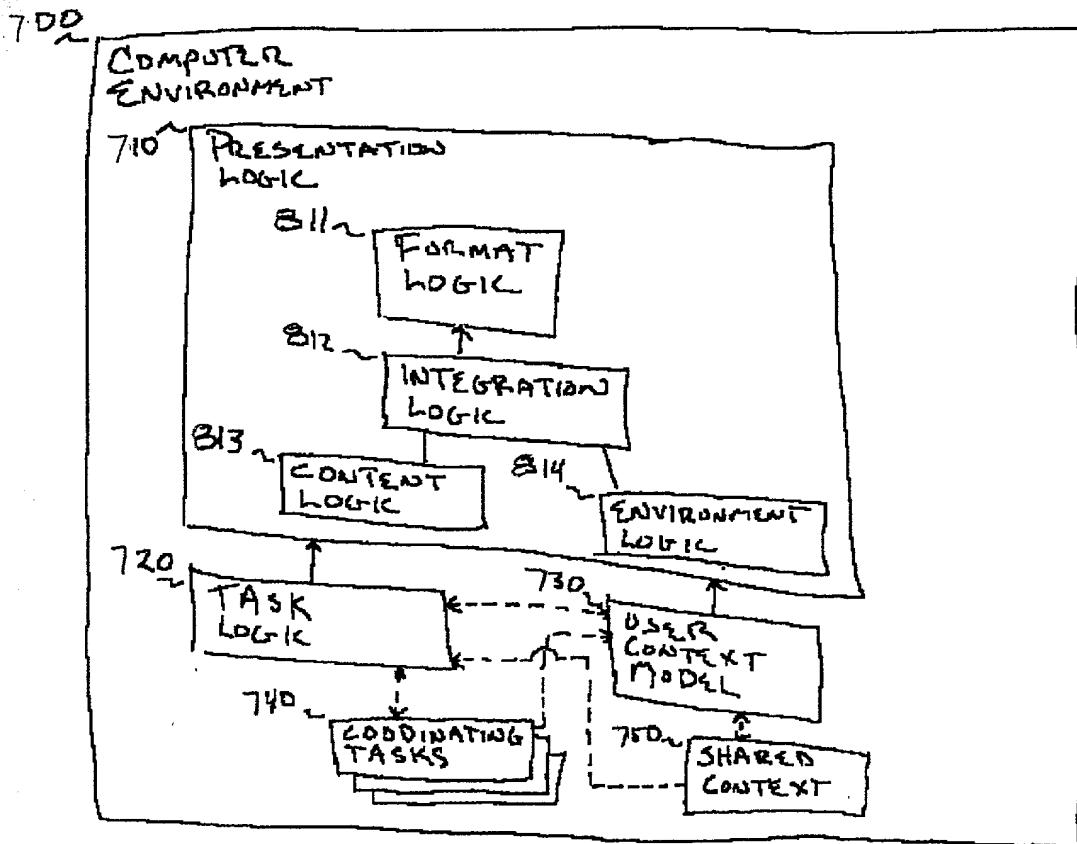 700
COMPUTER
ENVIRONMENT
710
PRESENTATION
LOGIC
811
FORMAT
LOGIC
812
INTEGRATION
LOGIC
813
CONTENT
LOGIC
814
ENVIRONMENT
LOGIC
720
TASK
LOGIC
730
USER
CONTEXT
MODEL
740
COODINATING
TASKS
750
SHARED
CONTEXT